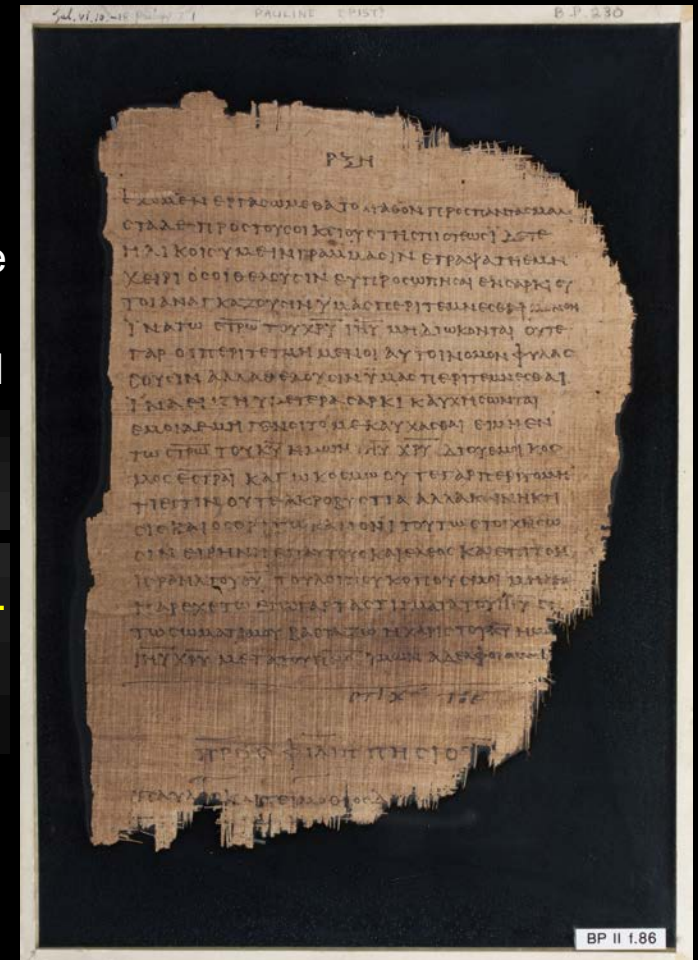 Gal. vi. 10 – 18 Philipp. i. 1 PAULINE EPIST? B.P. 230
ΡΞΗ
ΕΧΟΜΕΝ ΕΡΓΑϹΩΜΕΘΑ ΤΟ ΑΓΑΘΟΝ ΠΡΟϹ ΠΑΝΤΑϹ ΜΑΛΙ
ϹΤΑ ΔΕ ΠΡΟϹ ΤΟΥϹ ΟΙΚΕΙΟΥϹ ΤΗϹ ΠΙϹΤΕΩϹ ΙΔΕΤΕ
ΗΛΙΚΟΙϹ ΥΜΕΙΝ ΓΡΑΜΜΑϹΙΝ ΕΓΡΑΨΑ ΤΗ ΕΜΗ
ΧΕΙΡΙ ΟϹΟΙ ΘΕΛΟΥϹΙΝ ΕΥΠΡΟϹΩΠΗϹΑΙ ΕΝ ϹΑΡΚΙ ΟΥ
ΤΟΙ ΑΝΑΓΚΑΖΟΥϹΙΝ ΥΜΑϹ ΠΕΡΙΤΕΜΝΕϹΘΑΙ ΜΟΝΟΝ
ΙΝΑ ΤΩ ϹΤΡΩ ΤΟΥ ΧΡΥ ΙΗΥ ΜΗ ΔΙΩΚΟΝΤΑΙ ΟΥΤΕ
ΓΑΡ ΟΙ ΠΕΡΙΤΕΤΜΗΜΕΝΟΙ ΑΥΤΟΙ ΝΟΜΟΝ ΦΥΛΑϹ
ϹΟΥϹΙΝ ΑΛΛΑ ΘΕΛΟΥϹΙΝ ΥΜΑϹ ΠΕΡΙΤΕΜΝΕϹΘΑΙ
ΙΝΑ ΕΝ ΤΗ ΥΜΕΤΕΡΑ ϹΑΡΚΙ ΚΑΥΧΗϹΩΝΤΑΙ
ΕΜΟΙ ΔΕ ΜΗ ΓΕΝΟΙΤΟ ΜΕ ΚΑΥΧΑϹΘΑΙ ΕΙ ΜΗ ΕΝ
ΤΩ ϹΤΡΩ ΤΟΥ ΚΥ ΗΜΩΝ ΙΗΥ ΧΡΥ ΔΙ ΟΥ ΕΜΟΙ ΚΟϹ
ΜΟϹ ΕϹΤΡΑΙ ΚΑΓΩ ΚΟϹΜΩ ΟΥΤΕ ΓΑΡ ΠΕΡΙΤΟΜΗ
ΤΙ ΕϹΤΙΝ ΟΥΤΕ ΑΚΡΟΒΥϹΤΙΑ ΑΛΛΑ ΚΑΙΝΗ ΚΤΙ
ϹΙϹ ΚΑΙ ΟϹΟΙ ΤΩ ΚΑΝΟΝΙ ΤΟΥΤΩ ϹΤΟΙΧΗϹΩ
ϹΙΝ ΕΙΡΗΝΗ ΕΠ ΑΥΤΟΥϹ ΚΑΙ ΕΛΕΟϹ ΚΑΙ ΕΠΙ ΤΟΝ
ΙϹΡΑΗΛ ΤΟΥ ΘΥ ΤΟΥ ΛΟΙΠΟΥ ΚΟΠΟΥϹ ΜΟΙ ΜΗΔΕΙϹ
ΠΑΡΕΧΕΤΩ ΕΓΩ ΓΑΡ ΤΑ ϹΤΙΓΜΑΤΑ ΤΟΥ ΙΗΥ ΕΝ
ΤΩ ϹΩΜΑΤΙ ΜΟΥ ΒΑϹΤΑΖΩ Η ΧΑΡΙϹ ΤΟΥ ΚΥ ΗΜΩ
ΙΗΥ ΧΡΥ ΜΕΤΑ ΤΟΥ ΠΝϹ ΥΜΩΝ ΑΔΕΛΦΟΙ ΑΜΗΝ
ϹΤΙΧ ΤΟΕ
ΠΡΟϹ ΦΙΛΙΠΠΗϹΙΟΥϹ
ΠΑΥΛΟϹ ΚΑΙ ΤΕΙΜΟΘΕΟϹ
BP II f.86